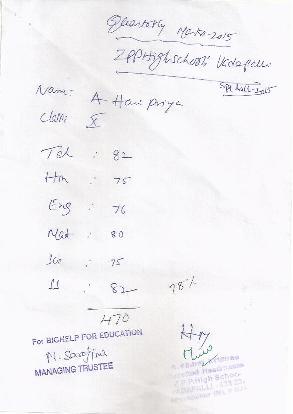 Quarterly Marks-2015
ZPP High school
Name: A. Hari priya
Class X
Tel : 82
Hin : 75
Eng : 76
Mat : 80
Sci : 75
SS : 82 78%
470
For BIGHELP FOR EDUCATION
N. Sarojina
MANAGING TRUSTEE
Z P P High School